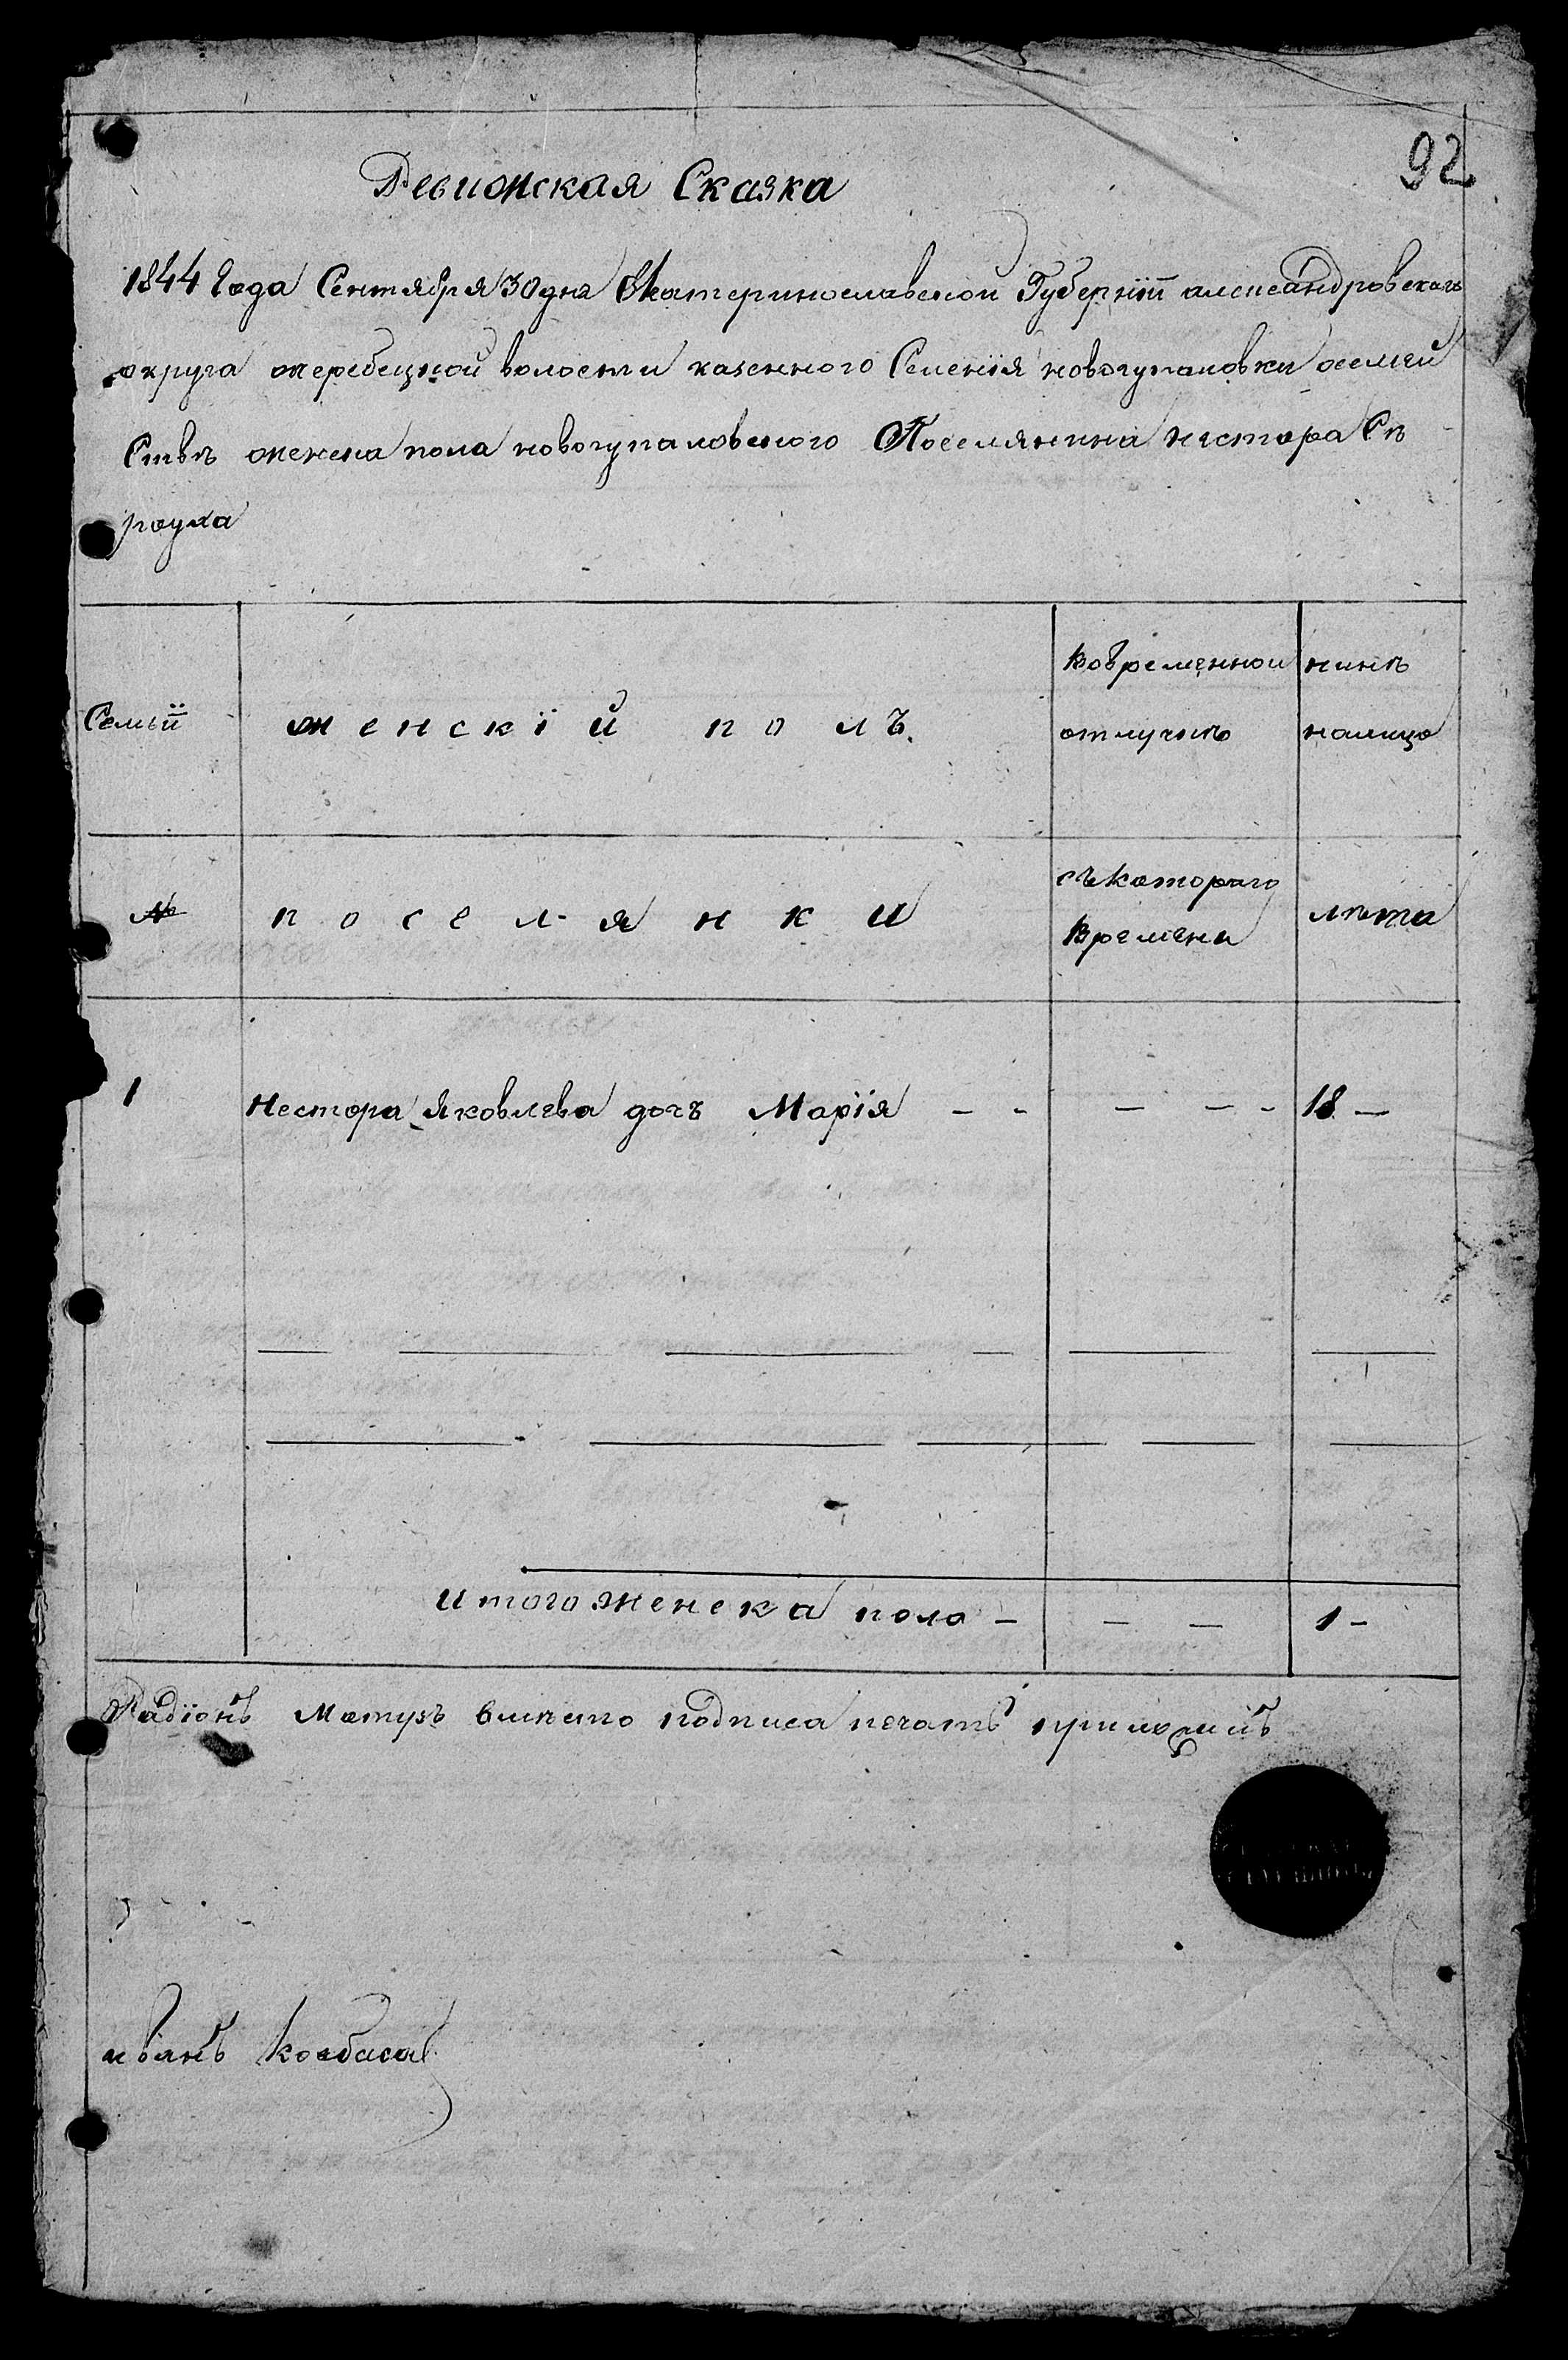 92
Ревижская Сказка
1844 Года Сентября 30 дня Екатеринославской Губернїи александровскаго
округа жеребецкой волости казенного Селенїя новогупаловки осемей
Ствѣ женска пола новогупаловского Поселянина нестора Ск
роука
Семьи женскїй полъ. вовременной нинѣ
отлучкѣ налицо
№ поселянки съ котораго лѣта
времени
1 Нестора Яковлева дочъ Марїя — - — — - 18 —
итого женска пола — — — 1 —
Радїонъ Мотузъ вмѣсто подписа печать приложилъ
иванъ Ковбаса